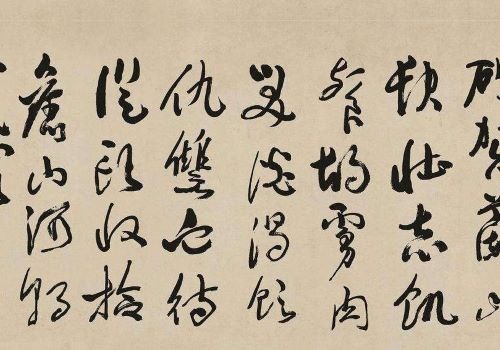 破賀蘭山
缺壯志飢
餐胡虜肉
笑談渴飲
仇讐血待
從頭收拾
舊山河朝